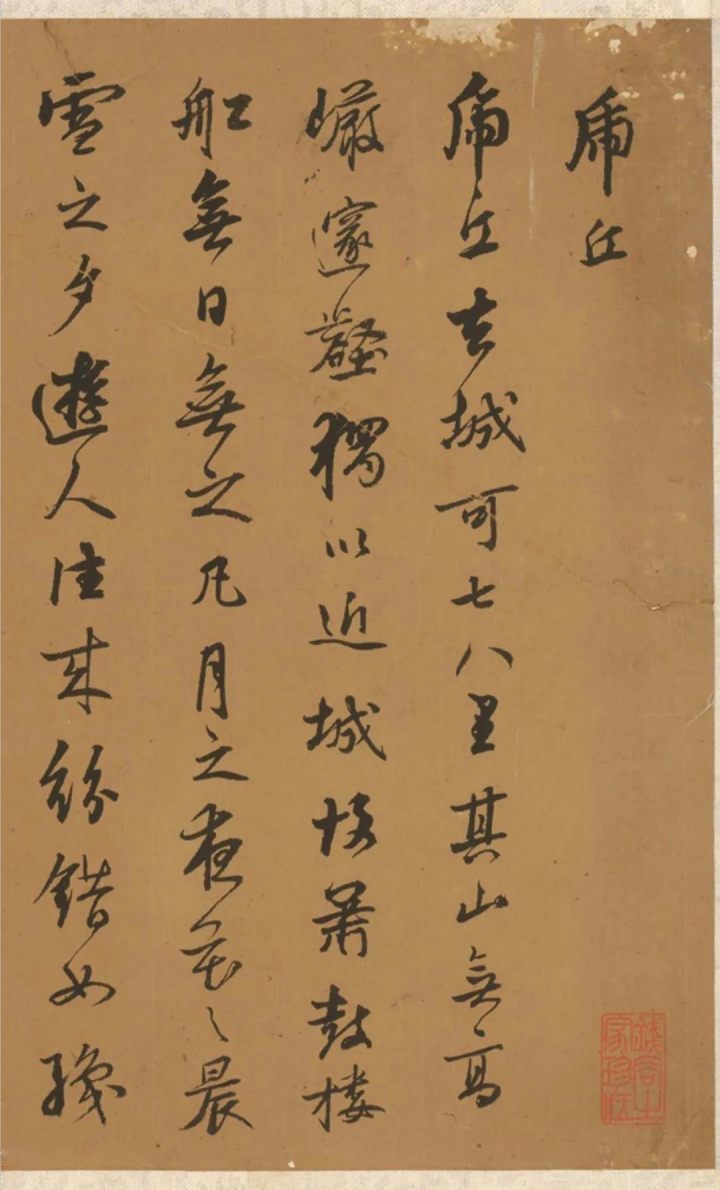 虎丘
虎丘去城可七八里其山無高
巗邃壑獨以近城故蕭鼓樓
船無日無之凡月之夜花之晨
雪之夕遊人往來紛錯如織